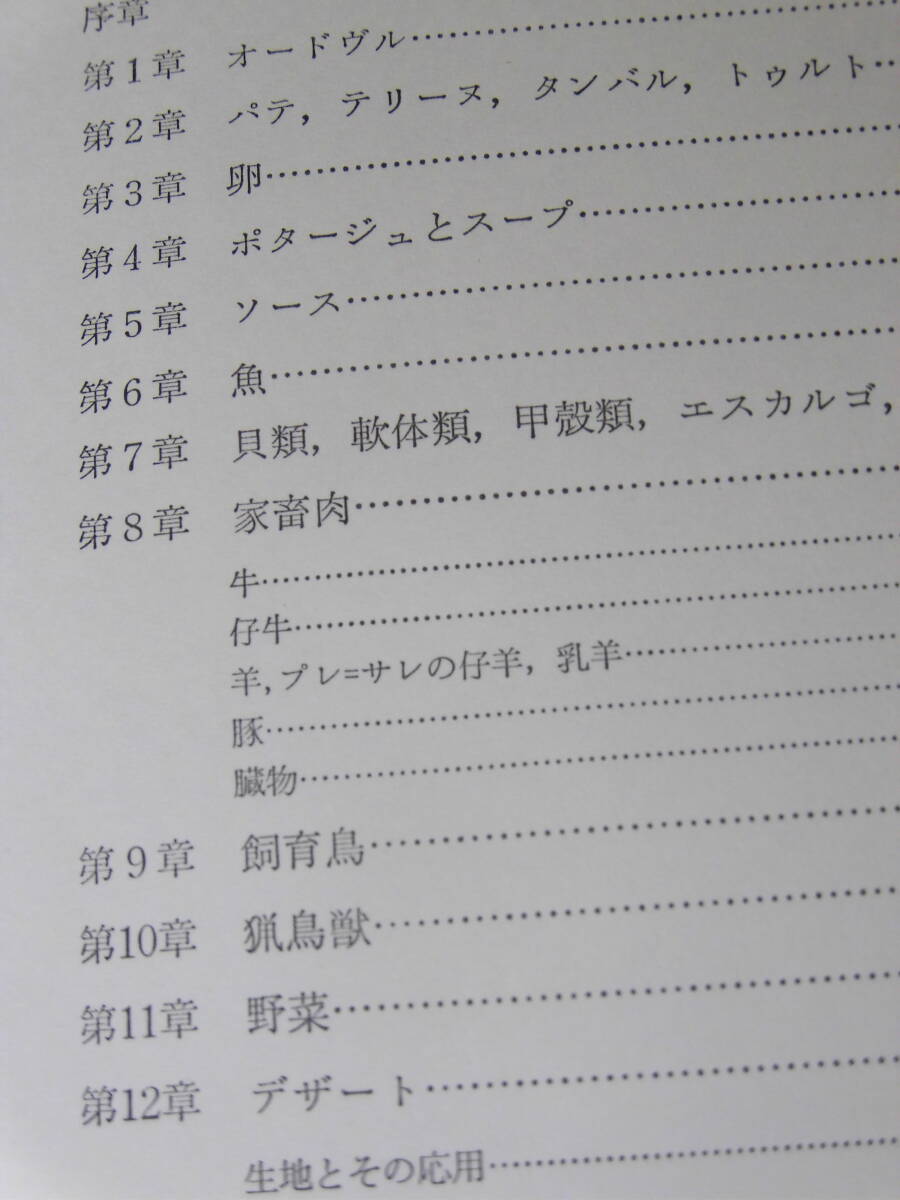 序章
第1章 オードヴル……………………
第2章 パテ，テリーヌ，タンバル，トゥルト…
第3章 卵……………………………
第4章 ポタージュとスープ………………
第5章 ソース…………………………
第6章 魚……………………………
第7章 貝類，軟体類，甲殻類，エスカルゴ，
第8章 家畜肉…………………………
牛……………………………
仔牛…………………………
羊，プレ=サレの仔羊，乳羊……………
豚……………………………
臓物…………………………
第9章 飼育鳥…………………………
第10章 猟鳥獣…………………………
第11章 野菜……………………………
第12章 デザート………………………
生地とその応用……………………